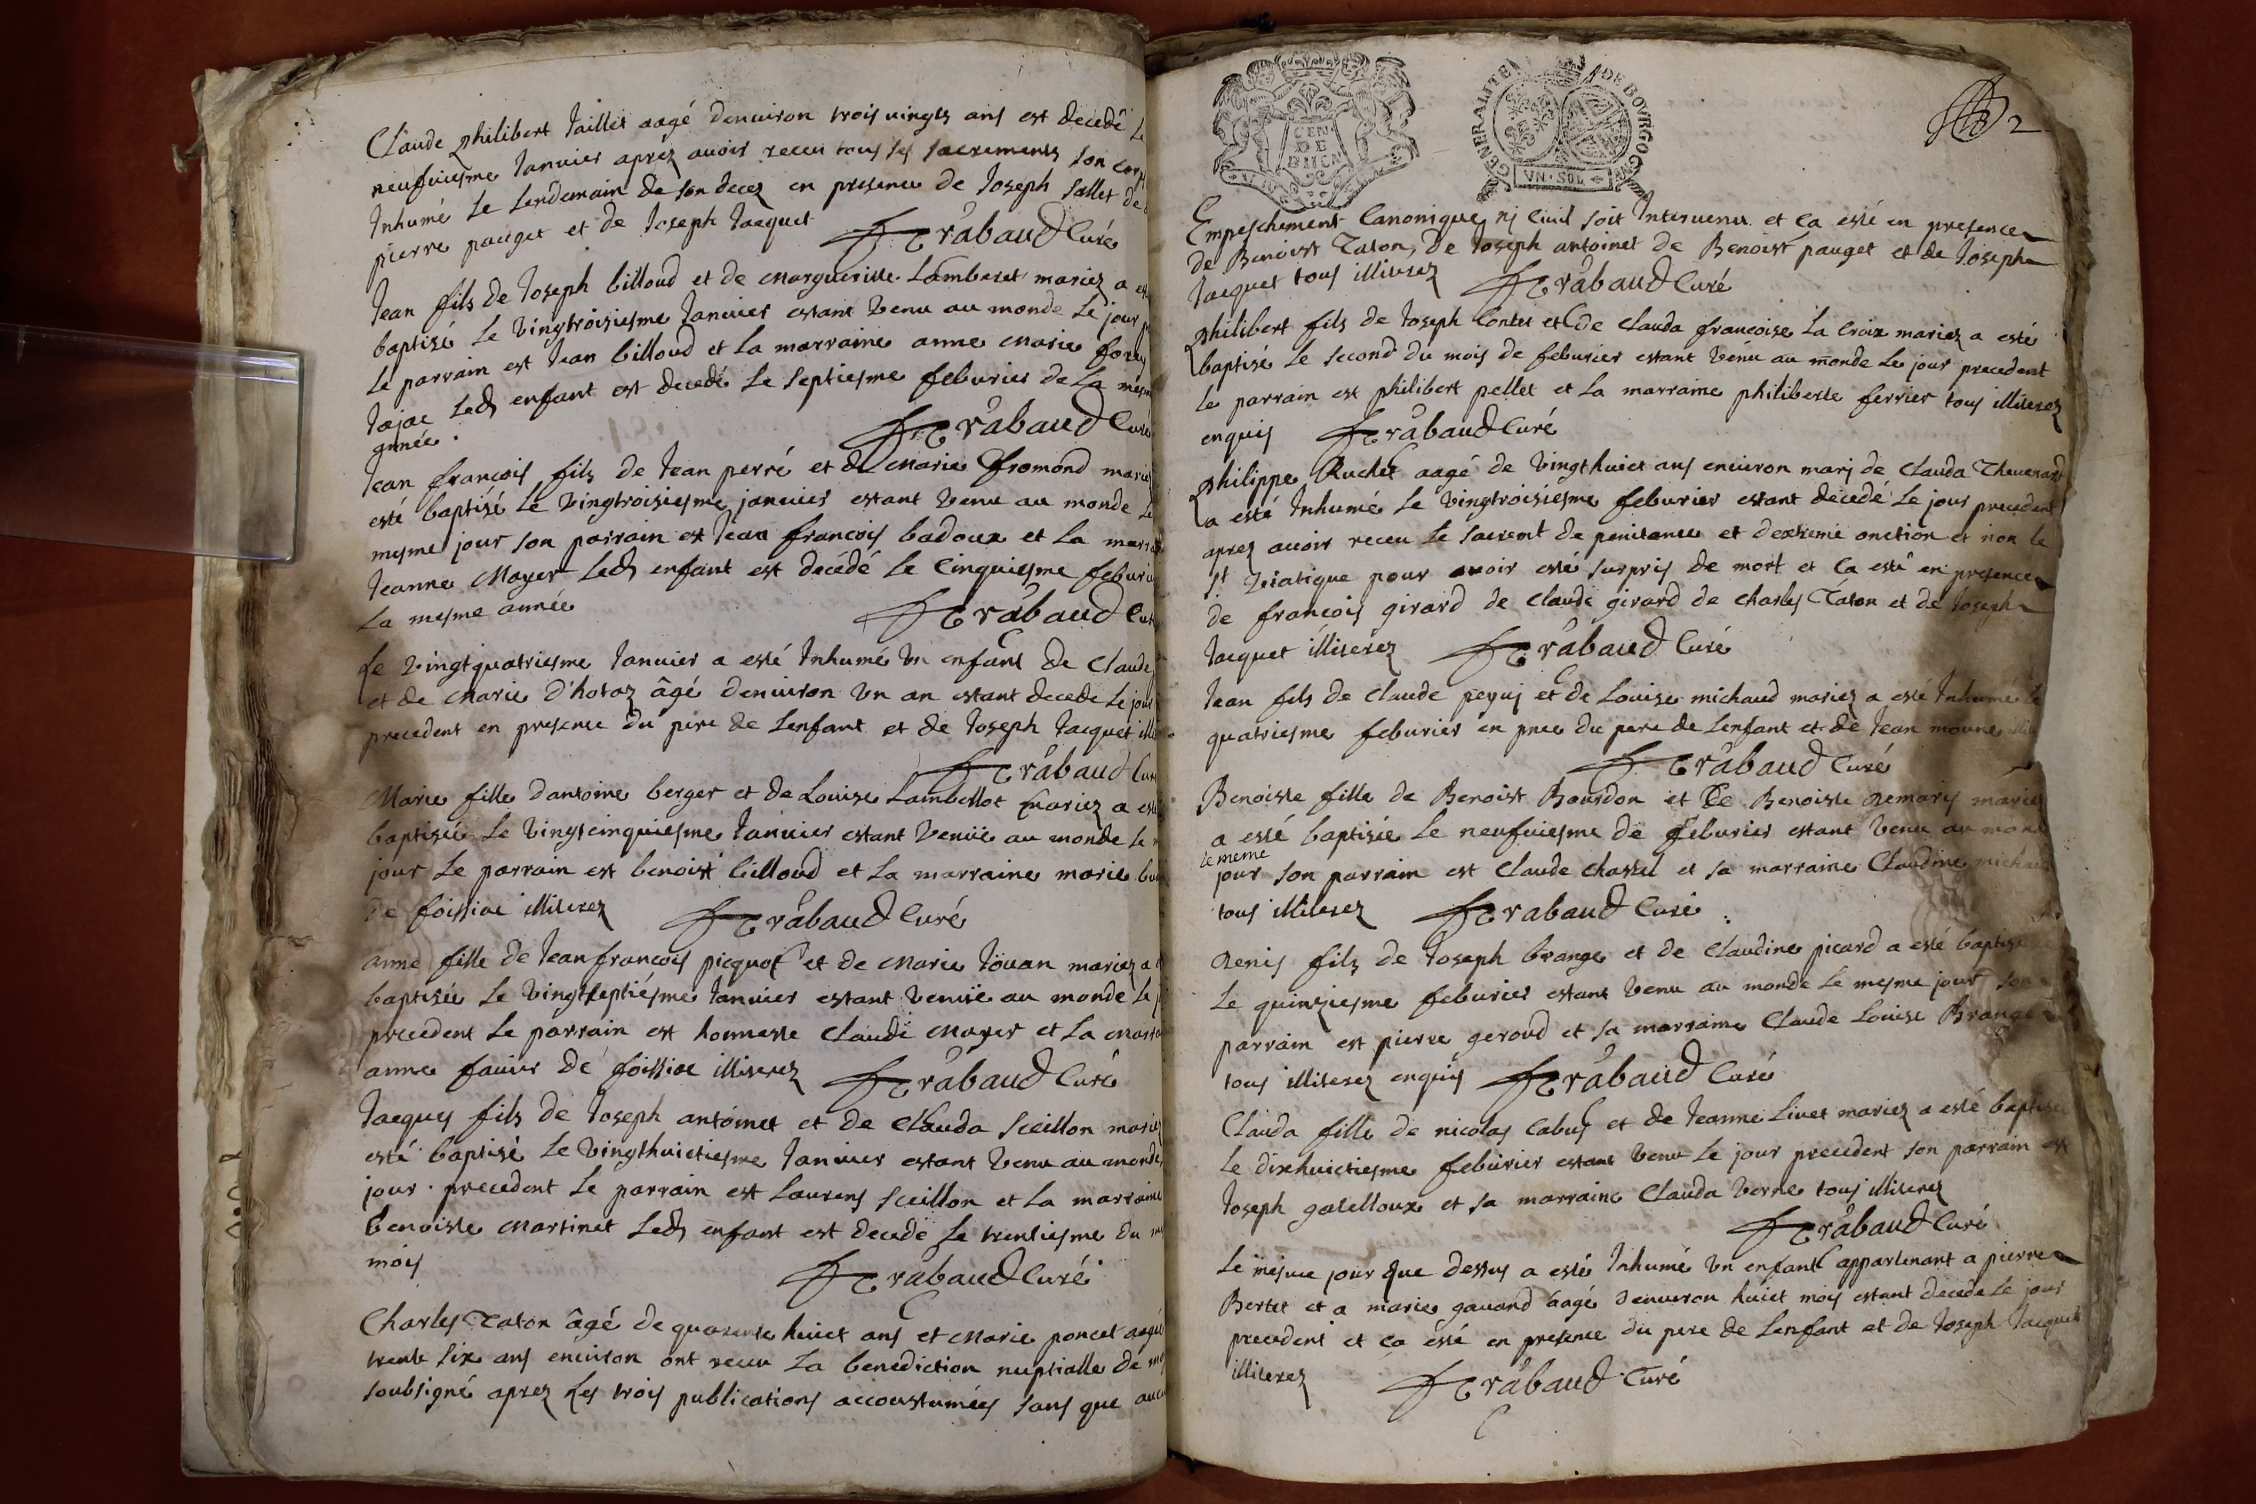 Claude philibert Taillet aagé denuiron trois vingts ans est decedé le
neufuiesme Januier aprez auoir receu tous ses sacrements son corps
Inhumé le lendemain de son decez en presence de Joseph Sallet de
pierre pauget et de Joseph Jacquet Trabaud Curé
Jean fils de Joseph billoud et de Margueritte Lamberet mariez a esté
baptisé le vingtroisiesme Januier estant venu au monde le jour
le parrain est Jean billoud et la marraine anne Marie
led enfant est decedé le septiesme feburier de la mesme
année. Trabaud Curé
Jean françois fils de Jean perré et de Marie fromond mariez
esté baptisé le vingtroisiesme januier estant venu au monde le
mesme jour son parrain est Jean françois badoux et la marraine
Jeanne Moyer led enfant est décédé le cinquiesme feburier
la mesme année Trabaud Curé
Le vingtquatriesme Januier a esté Inhumé vn enfant de Claude
et de Marie d'hotaz âgé denuiron vn an estant decede le jour
precedent en presence du pere de Lenfant et de Joseph Jacquet
Trabaud Curé
Marie fille dantoine berger et de Louise Lambellot mariez a esté
baptisée le vingtcinquiesme Januier estant venüe au monde le
jour le parrain est benoist billoud et la marraine marie
de foissiac illiterez Trabaud Curé
anne fille de Jean françois picquot et de Marie Joüan mariez a
baptisée le vingtseptiésme Januier estant venüe au monde le
precedent le parrain est honneste Claude Moyer et la
anne fauier de foissiac illiterez Trabaud Curé
Jacques fils de Joseph antoinet et de Clauda sceillon mariez
esté baptisé le vingthuictiesme Januier estant venu au monde
jour precedent le parrain est Laurens sceillon et la marraine
benoiste Martinet led enfant est decedé le trentiesme du
mois Trabaud Curé
Charles Taton âgé de quarante huict ans et Marie poncet aagée
trente six ans enuiron ont receu la benediction nuptialle de
soubsigné aprez les trois publications accoustumées sans que
GENERALITE DE BOVRGOGNE
VN·SOL
2
Empeschement Canonique nj Ciuil soit Interuenu et ca esté en presence
de Benoist Taton, de Joseph antoinet de Benoist pauget et de Joseph
Jacquet tous illiterez Trabaud Curé
philibert fils de Joseph Contet et de Clauda françoise la Croix mariez a esté
baptisé le second du mois de feburier estant vénu au monde le jour precedent
le parrain est philibert pellet et la marraine philiberte ferrier tous illiterez
enquis Trabaud Curé
philippe Ruchet aagé de vingthuict ans enuiron marj de Clauda Theuenard
a esté Inhumé le vingtroisiesme feburier estant decedé le jour precedent
aprez auoir receu le sacremt de penitance et dextreme onction et non le
St viatique pour auoir esté surpris de mort et ca esté en presence
de françois girard de Claude girard de Charles Taton et de Joseph
Jacquet illiterez Trabaud Curé
Jean fils de Claude peyuj et de Louise michaud mariez a esté Inhumé le
quatriesme feburier en pnce du pere de Lenfant et de Jean moune
Trabaud Curé
Benoiste fille de Benoist Bourdon et de Benoiste Remary mariez
a esté baptisée le neufuiesme de feburier estant venu au monde
le meme
jour son parrain est Claude Chastel et sa marraine Claudine michaud
tous illiterez Trabaud Curé
Denis fils de Joseph brange et de Claudine picard a esté baptisé
le quinziesme feburier estant venu au monde le mesme jour son
parrain est pierre geroud et sa marraine Claude Louise Brange
tous illiterez enquis Trabaud Curé
Clauda fille de nicolas Cabus et de Jeanne Liuet mariez a esté baptisée
le dixhuictiesme feburier estant venu le jour precedent son parrain est
Joseph gatelloux et sa marraine Clauda verne tous illiterez
Trabaud Curé
Le mesme jour que dessus a esté Inhumé vn enfant appartenant a pierre
Bertet et a marie gauand aagé denuiron huict mois estant decede le jour
precedent et ca esté en presence du pere de Lenfant et de Joseph Jacquet
illiterez Trabaud Curé